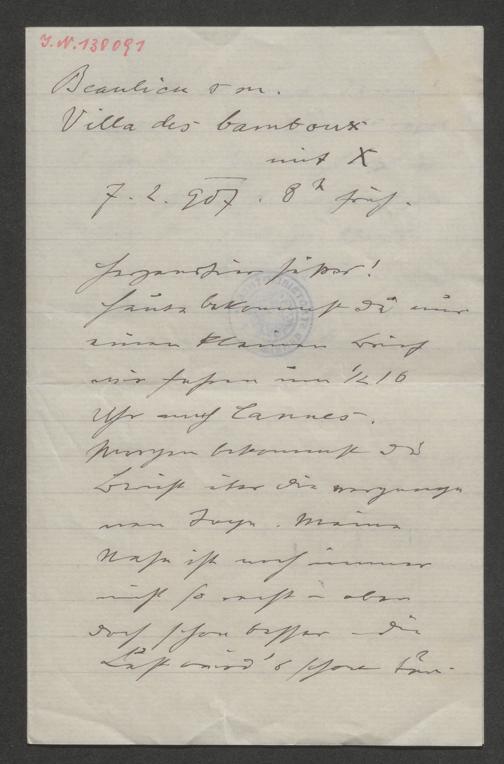 I.N. 138091
Beaulieu s m.
Villa des bamboux
mit X
7. 2. 907. 8 h früh.
süßer!
heute bekommst du nur
einen kleinen Brief
wir fahren um 1/2 10
Uhr nach Cannes.
Morgen bekommst du
Bericht über die vergange
nen Tage. Meine
Nase ist noch immer
nicht so recht – aber
doch schon besser – die
Luft wird's schon